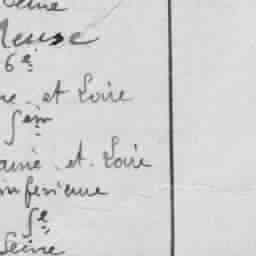 Seine
Meuse
6e
ne et Loire
5em
aine et Loire
inferieure
5e
Seine